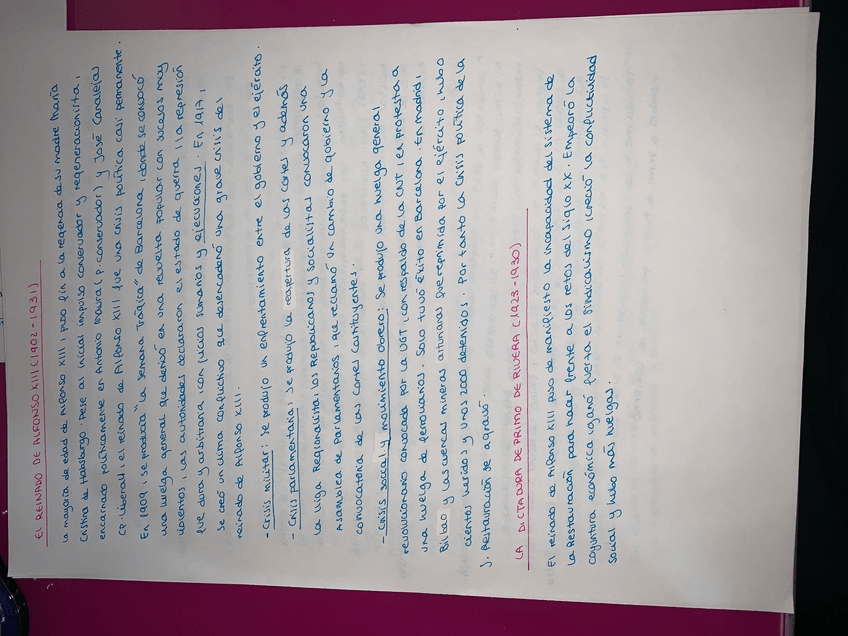 EL REINADO DE ALFONSO XIII (1902-1931)
La mayoría de edad de Alfonso XIII, puso fin a la regencia de su madre María
Cristina de Habsburgo. Pese al inicial impulso conservador y regeneracionista,
encarnado políticamente en Antonio Maura (P. conservador) y José Canalejas
(P. Liberal), el reinado de Alfonso XIII fue una crisis política casi permanente.
En 1909, se producía "la Semana Trágica" de Barcelona, donde se convocó
una huelga general que derivó en una revuelta popular con sucesos muy
violentos, las autoridades declararon el estado de guerra, la represión
fue dura y arbitraria con juicios sumarios y ejecuciones. En 1917,
se creó un clima conflictivo que desencadenó una grave crisis del
reinado de Alfonso XIII.
- Crisis militar: Se produjo un enfrentamiento entre el gobierno y el ejército.
- Crisis parlamentaria: Se produjo la reapertura de las cortes y además
la Lliga Regionalista, los Republicanos y socialistas convocaron una
Asamblea de Parlamentarios, que reclamó un cambio de gobierno y la
convocatoria de las Cortes Constituyentes.
- Crisis social y movimiento obrero: Se produjo una huelga general
revolucionaria convocada por la UGT, con respaldo de la CNT, en protesta a
una huelga de ferroviarios. Solo tuvo éxito en Barcelona. En Madrid,
Bilbao y las cuencas mineras asturianas fue reprimida por el ejército, hubo
cientos heridos y unos 2000 detenidos. Por tanto la crisis política de la
Restauración se agravó.
LA DICTADURA DE PRIMO DE RIVERA (1923-1930)
El reinado de Alfonso XIII puso de manifiesto la incapacidad del sistema de
la Restauración para hacer frente a los retos del Siglo XX. Empeoró la
coyuntura económica, ganó fuerza el Sindicalismo, creció la conflictividad
social y hubo más huelgas.